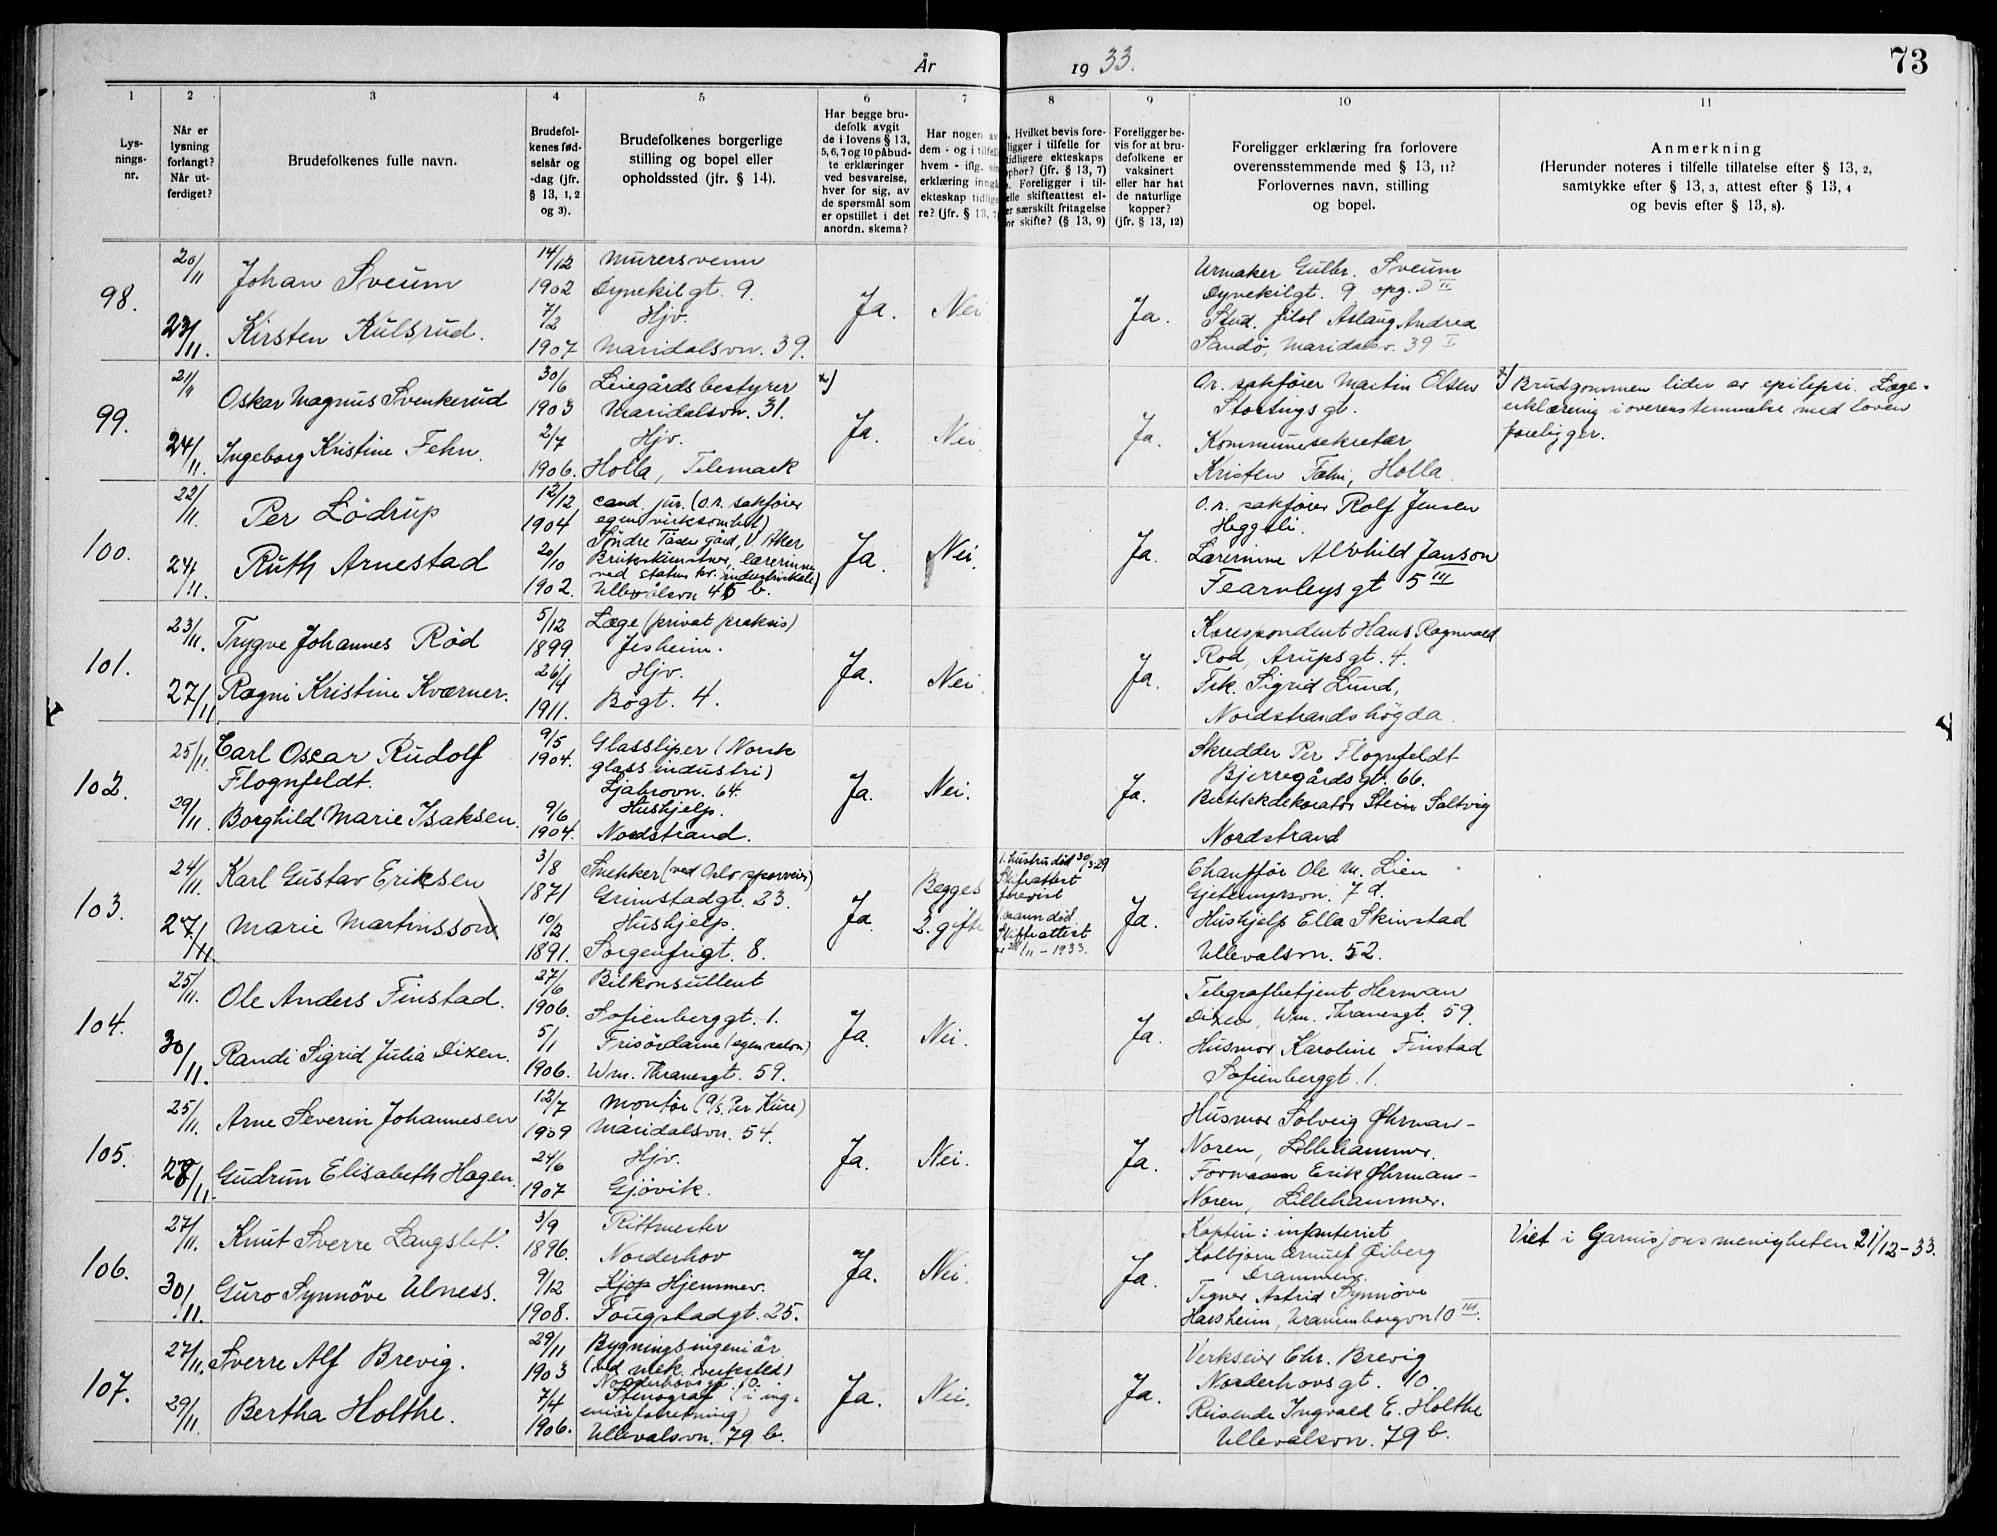 År 1933.
73
1 2 3 4 5 6 7 8 9 10 11
Lys-
nings-
nr.
Når er
lysning
forlangt?
Når ut-
ferdiget?
Brudefolkenes fulle navn.
Brudefol-
kenes fød-
selsår og
-dag (jfr.
§ 13, 1, 2
og 3).
Brudefolkenes borgerlige
stilling og bopel eller
opholdssted (jfr. § 14).
Har begge bru-
defolk avgit
de i lovens § 13,
5, 6, 7 og 10 påbud-
te erklæringer
ved besvarelse,
hver for sig, av
de spørsmål som
er opstillet i det
anordn. skema?
Har nogen av
dem - og i tilfelle
hvem - iflg. sin
erklæring inngå
ekteskap tidlige
re? (jfr. § 13, 7
Hvilket bevis fore-
ligger i tilfelle for
tidligere ekteskaps
ophør? (jfr. § 13, 7)
Foreligger i til-
elle skifteattest el-
er særskilt fritagelse
or skifte? (§ 13, 9)
Foreligger be-
vis for at bru-
defolkene er
vaksinert
eller har hat
de naturlige
kopper?
(jfr. § 13, 12)
Foreligger erklæring fra forlovere
overensstemmende med § 13, 11?
Forlovernes navn, stilling
og bopel.
Anmerkning
(Herunder noteres i tilfelle tillatelse efter § 13, 2,
samtykke efter § 13, 3, attest efter § 13, 4
og bevis efter § 13, 8).
98.
20/11
23/11.
Johan Sveum
Kirsten Kulsrud.
14/12
1902
7/2
1907
Murersvenn
Dynekilgt. 9.
Hjv.
Maridalsvn. 39.
Ja.
Nei
Ja.
Urmaker Gulbr. Sveum
Dynekilgt. 9 opg. D II
Stud. filol Aslaug Andrea
Sandö, Maridalsv. 39 I
99.
21/11
24/11.
Oskar Magnus Svenkerud
Ingeborg Kristine Fehn.
30/6
1903
2/7
1906.
Leiegårdsbestyrer
Maridalsvn. 31.
Hjv.
Holla, Telemark
x)
Ja.
Nei
Ja.
O.r. sakfører Martin Olsen
Stortingsgt.
Kommunesekretær
Kristen Fehn, Holla.
x) Brudgommen lider av epilepsi. Læge-
erklæring i overenstemmelse med loven
foreligger.
100.
22/11.
24/11.
Per Lödrup
Ruth Arnestad
12/12
1904
20/10
1902.
cand. jur. (o.r. sakfører
egen virksomhet)
Söndre Tåsen gård, V. Aker
Brukskunstner, lærerinne
ved statens kv. industriskole)
Ullevålsvn 45 b.
Ja.
Nei.
Ja.
O.r. sakfører Rolf Jensen
Heggeli.
Lærerinne Alvhild Janson
Fearnleysgt 5 III
101.
23/11.
27/11
Trygve Johannes Röd
Ragni Kristine Kværner.
5/12
1899
26/4
1911.
Læge (privat praksis)
Jesheim.
Hjv.
Bögt. 4.
Ja.
Nei.
Ja.
Korespondent Hans Ragnvald
Rod, Arupsgt. 4.
Frk. Sigrid Lund,
Nordstrandshögda.
102.
25/11.
29/11.
Carl Oscar Rudolf
Flognfeldt.
Borghild Marie Isaksen.
9/5
1904.
9/6
1904.
Glassliper (Norsk
glassindustri)
Ljabrovn. 64.
Hushjelp.
Nordstrand.
Ja.
Nei.
Ja.
Skredder Per Flognfeldt
Bjerregårdsgt. 66.
Butikkdekoratör Stein Saltvig
Nordstrand
103.
24/11.
27/11.
Karl Gustav Eriksen
Marie Martinsson
3/8
1871
10/2
1891.
Snekker (ved Oslo sporveier)
Grimstadgt. 23.
Hushjelp.
Sorgenfrigt. 8.
Ja.
Begges
2. gifte
1. hustru död 30/3.29
Skifteattest
forevist
1. mann död.
Skifteattest
28/11-1933.
Ja.
Chauffør Ole M. Lien
Gjetemyrsvn. 7 d.
Hushjelp Ella Skinstad
Ullevalsvn. 52.
104.
25/11.
30/11.
Ole Anders Finstad.
Randi Sigrid Julia Dixen.
27/6
1906.
5/1
1906.
Bilkonsullent
Sofienberggt. 1.
Frisördame (egen salon)
Wm. Thranesgt. 59.
Ja.
Nei.
Ja.
Telegrafbetjent Herman
Dixen, Wm. Thranesgt. 59.
Husmor Karoline Finstad
Sofienberggt. 1.
105.
25/11.
28/11.
Arne Severin Johannesen
Gudrun Elisabeth Hagen.
12/7
1909
24/6
1907
Montör (A/S. Per Kure)
Maridalsvn. 54.
Hjv.
Gjövik.
Ja.
Nei.
Ja.
Husmor Solveig Øhrman-
Noren, Lillehammer.
Formann Erik Øhrman-
Noren, Lillehammer.
106.
27/11.
30/11.
Knut Sverre Langslet.
Guro Synnöve Ulness.
3/9
1896.
9/12
1908.
Rittmester
Norderhov
Kjop Hjemmev.
Fougstadgt. 25.
Ja.
Nei.
Ja.
Kaptein i infanteriet
Kolbjørn Arnulf Øiberg
Drammen.
Tegner Astrid Synnöve
Harsheim, Uranienborgvn 10 III.
Viet i Garnisjonsmenigheten 21/12-33.
107.
27/11.
29/11.
Sverre Alf Brevig.
Bertha Holthe.
29/11
1903
7/4
1906.
Bygningsingeniör
(ved mek. verksted)
Norderhovsgt. 10.
Stenograf (i ing-
eniörforretning)
Ullevalsvn. 79 b.
Ja.
Nei.
Ja.
Verkseier Chr. Brevig
Norderhovsgt. 10.
Reisende Ingvald E. Holthe
Ullevalsvn. 79 b.